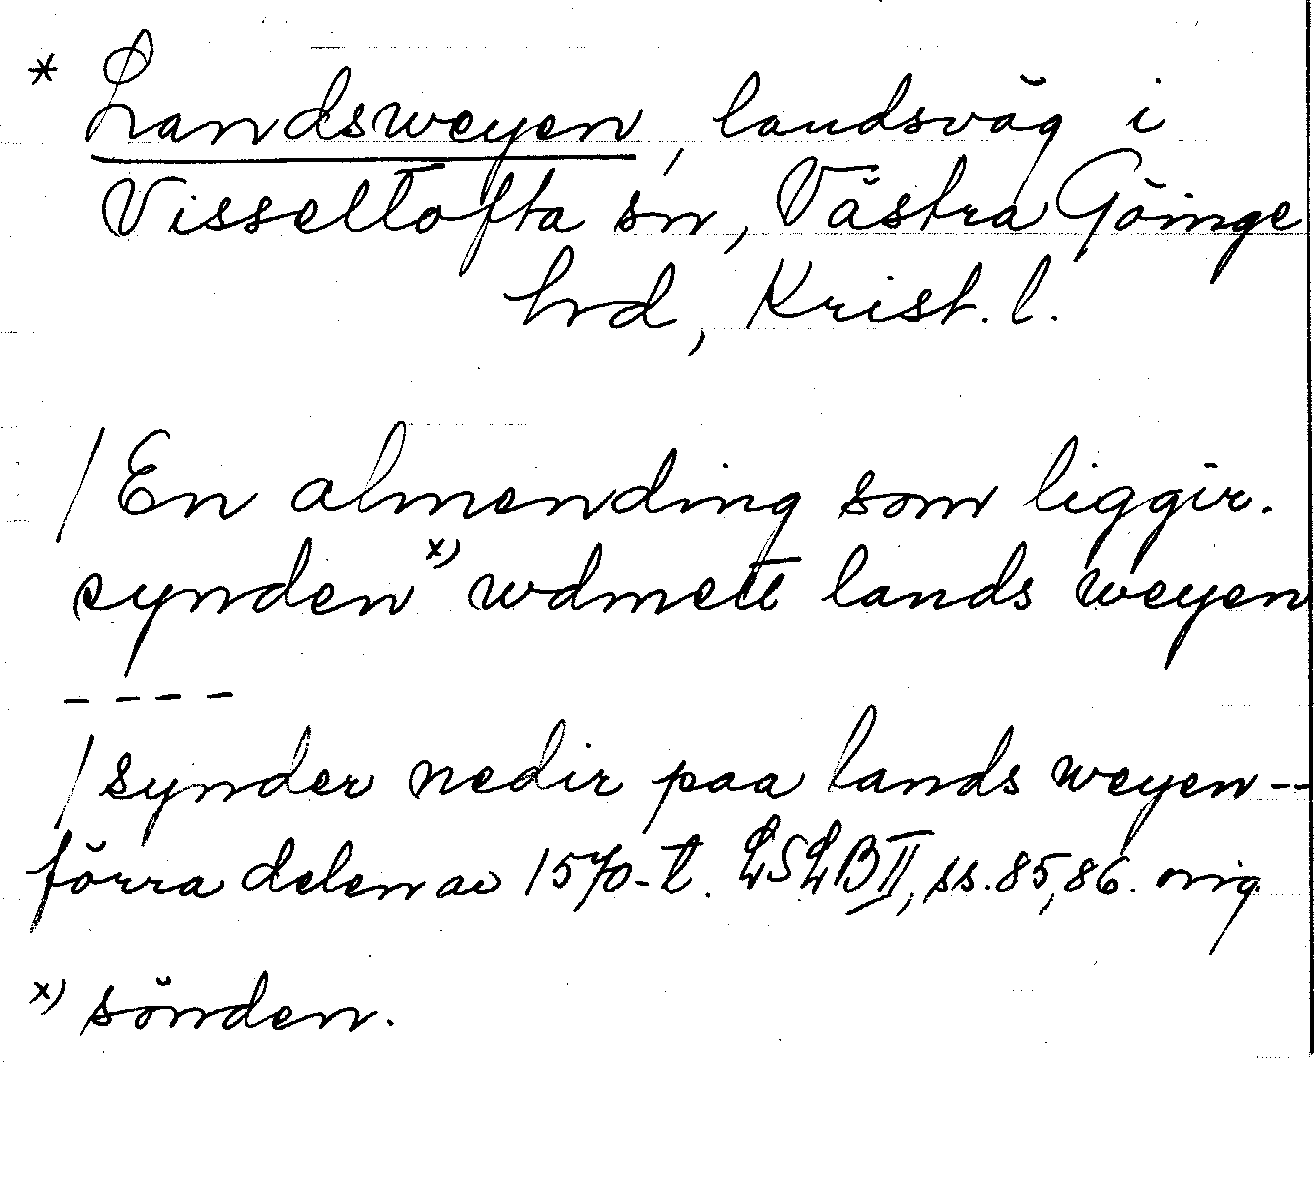 * Landsweyen, landsväg i
Visseltofta sn, Västra Göinge
hrd, Krist. l.
/ En almending som liggir.
synden x) wdmett lands weyen
- - - -
/ synder nedir paa lands weyen --
förra delen av 1570-t. LSLB II, ss. 85, 86. orig
x) sönden.